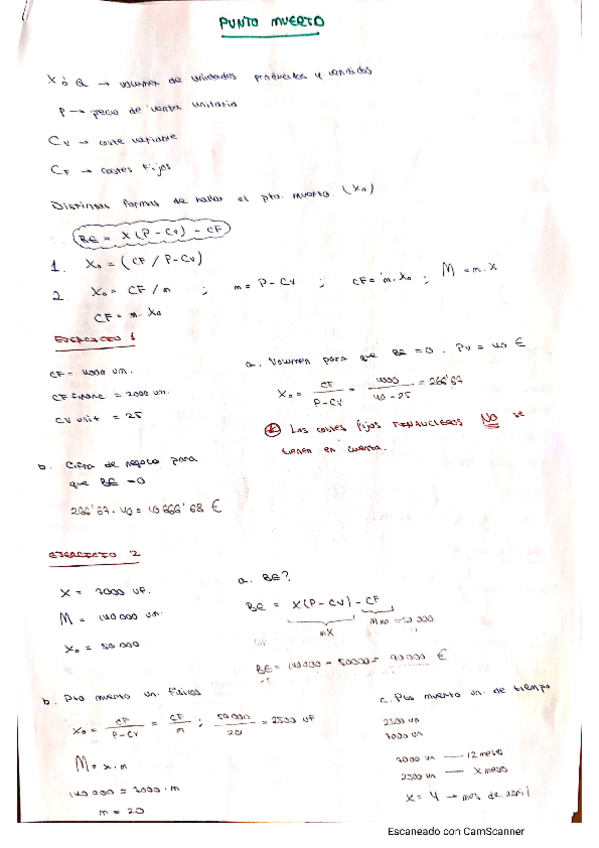 PUNTO MUERTO
X ó Q → volumen de unidades producidas y vendidas
P → precio de venta unitario
CV → coste variable
CF → costes fijos
Distintas formas de hallar el pto. muerto (X₀)
BE = X (P - CV) - CF
1. X₀ = (CF / P - CV)
2 X₀ = CF / m ; m = P - CV ; CF = m. X₀ ; M = m. X
CF = m. X₀
EJERCICIO 1
CF = 4000 um.
CF financ = 2000 um.
CV unit = 25
a. Volumen para que BE = 0. PV = 40 €
X₀ = CF / P - CV = 4000 / 40 - 25 = 266'67
Los costes fijos FINANCIEROS NO se
tienen en cuenta.
b. Cifra de negocio para
que BE = 0
266'67 · 40 = 10 666'68 €
EJERCICIO 2
X = 7000 UF.
M = 140 000 um.
X₀ = 50 000
a. BE?
BE = X(P - CV) - CF
mX
= 50 000
BE = 140000 - 50000 = 90000 €
b. Pto muerto un. físicas
X₀ = CF / P - CV = CF / m ; 50 000 / 20 = 2500 UF
M = x · m
140 000 = 7000 · m
m = 20
c. Pto muerto un. de tiempo
2500 un
7000 un
7000 un — 12 meses
2500 un — X meses
X = 4 → mes de abril
Escaneado con CamScanner